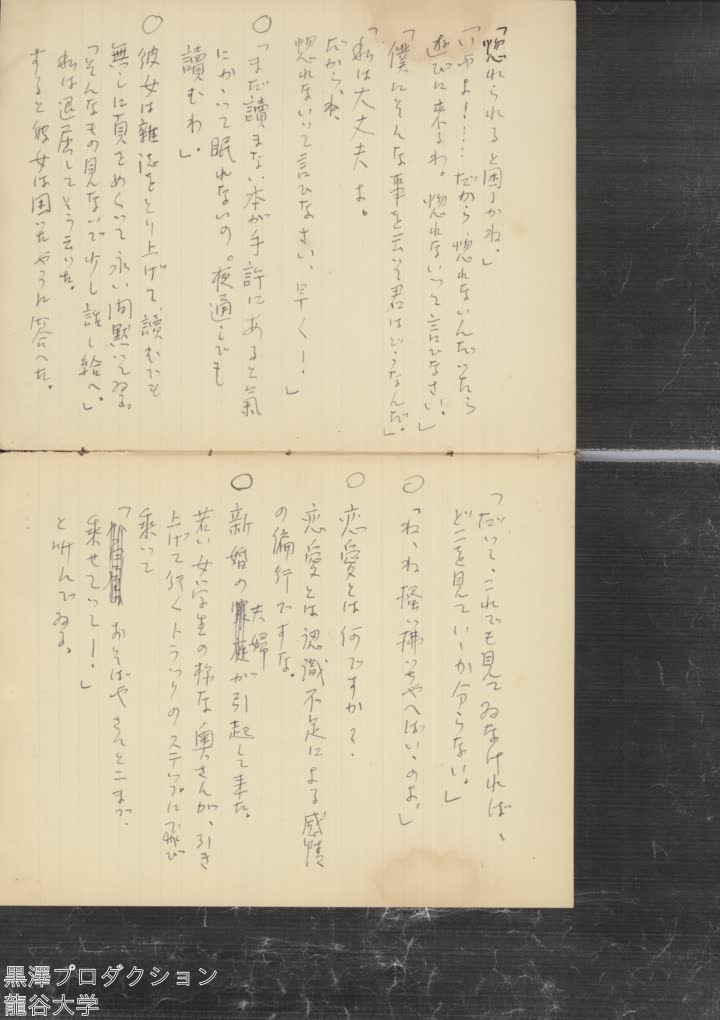 「惚れられると困るかね。」
「いやよ！……だから惚れないんだったら
遊びに来るわ。惚れないって言ひなさい。」
「僕にそんな事を云って君はどうなんだ。」
「私は大丈夫よ。
だから、ね、
惚れないって言ひなさい、早くー！」
○「まだ讀まない本が手許にあると氣
にかゝって眠れないの。夜通しでも
讀むわ。」
○彼女は雜誌をとり上げて、讀むでも
無しに頁をめくって永い間黙ってゐる。
「そんなもの見ないで少し話し給へ。」
私は退屈してそう云った。
すると彼女は困ったやうに答へた。
「だって、これでも見てゐなければ、
どこを見ていゝか分らない。」
○「ね、ね、掻っ拂っちやへばいゝのよ。」
○恋愛とは何ですか？
恋愛とは認識不足による感情
の偏行ですな。
○新婚の夫婦が引越して来た。
若い女学生の様な奥さんが、引き
上げて行くトラックのステップに飛び
乘って
「おそばやさんとこまで、
乘せてってー！」
と叫んでゐる。
黒澤プロダクション
龍谷大学